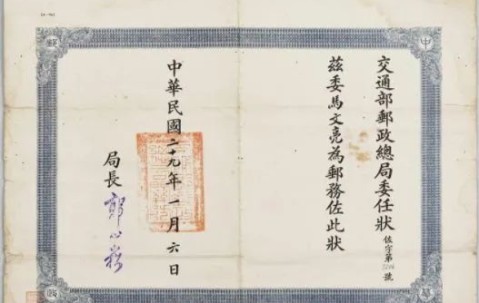 交通部郵政總局委任狀
佐字第
號
茲委馬文亮為郵務佐此狀
中華民國二十九年一月六日
局長
郭心崧
中
郵